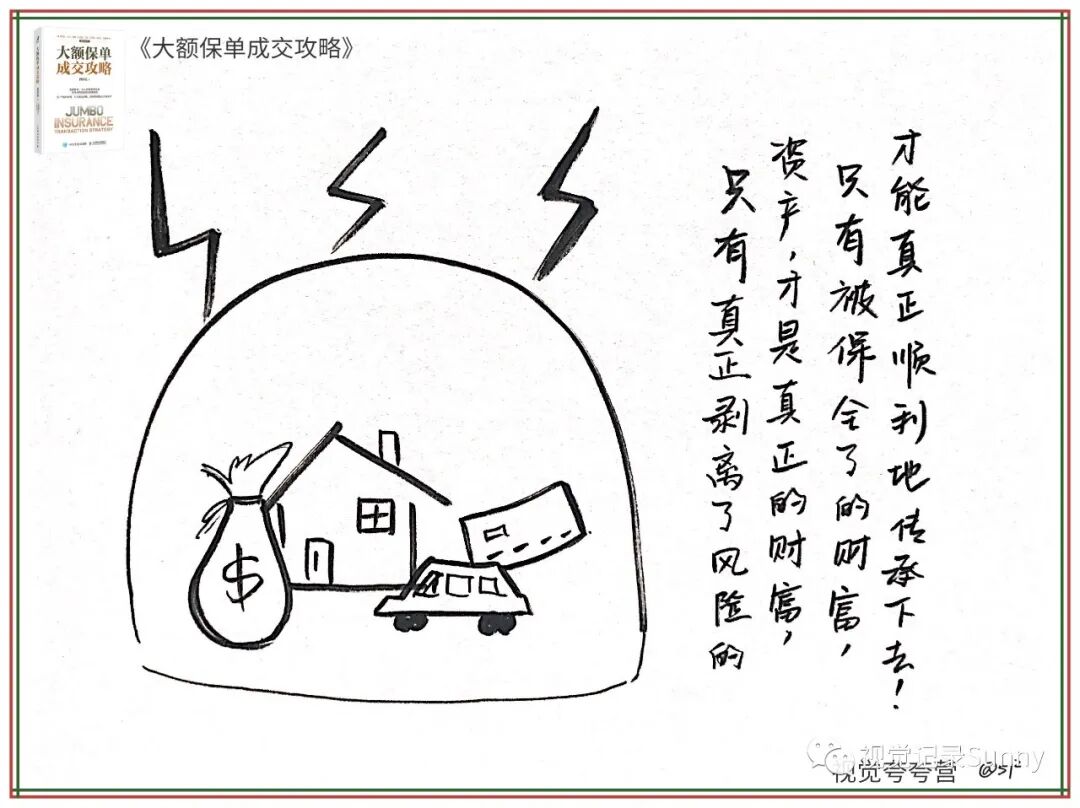 大额保单
成交攻略
JUMBO
INSURANCE
TRANSACTION STRATEGY
《大额保单成交攻略》
只有真正剥离了风险的
资产，才是真正的财富，
只有被保全了的财富，
才能真正顺利地传承下去！
视觉记录Sunny
视觉夸夸营